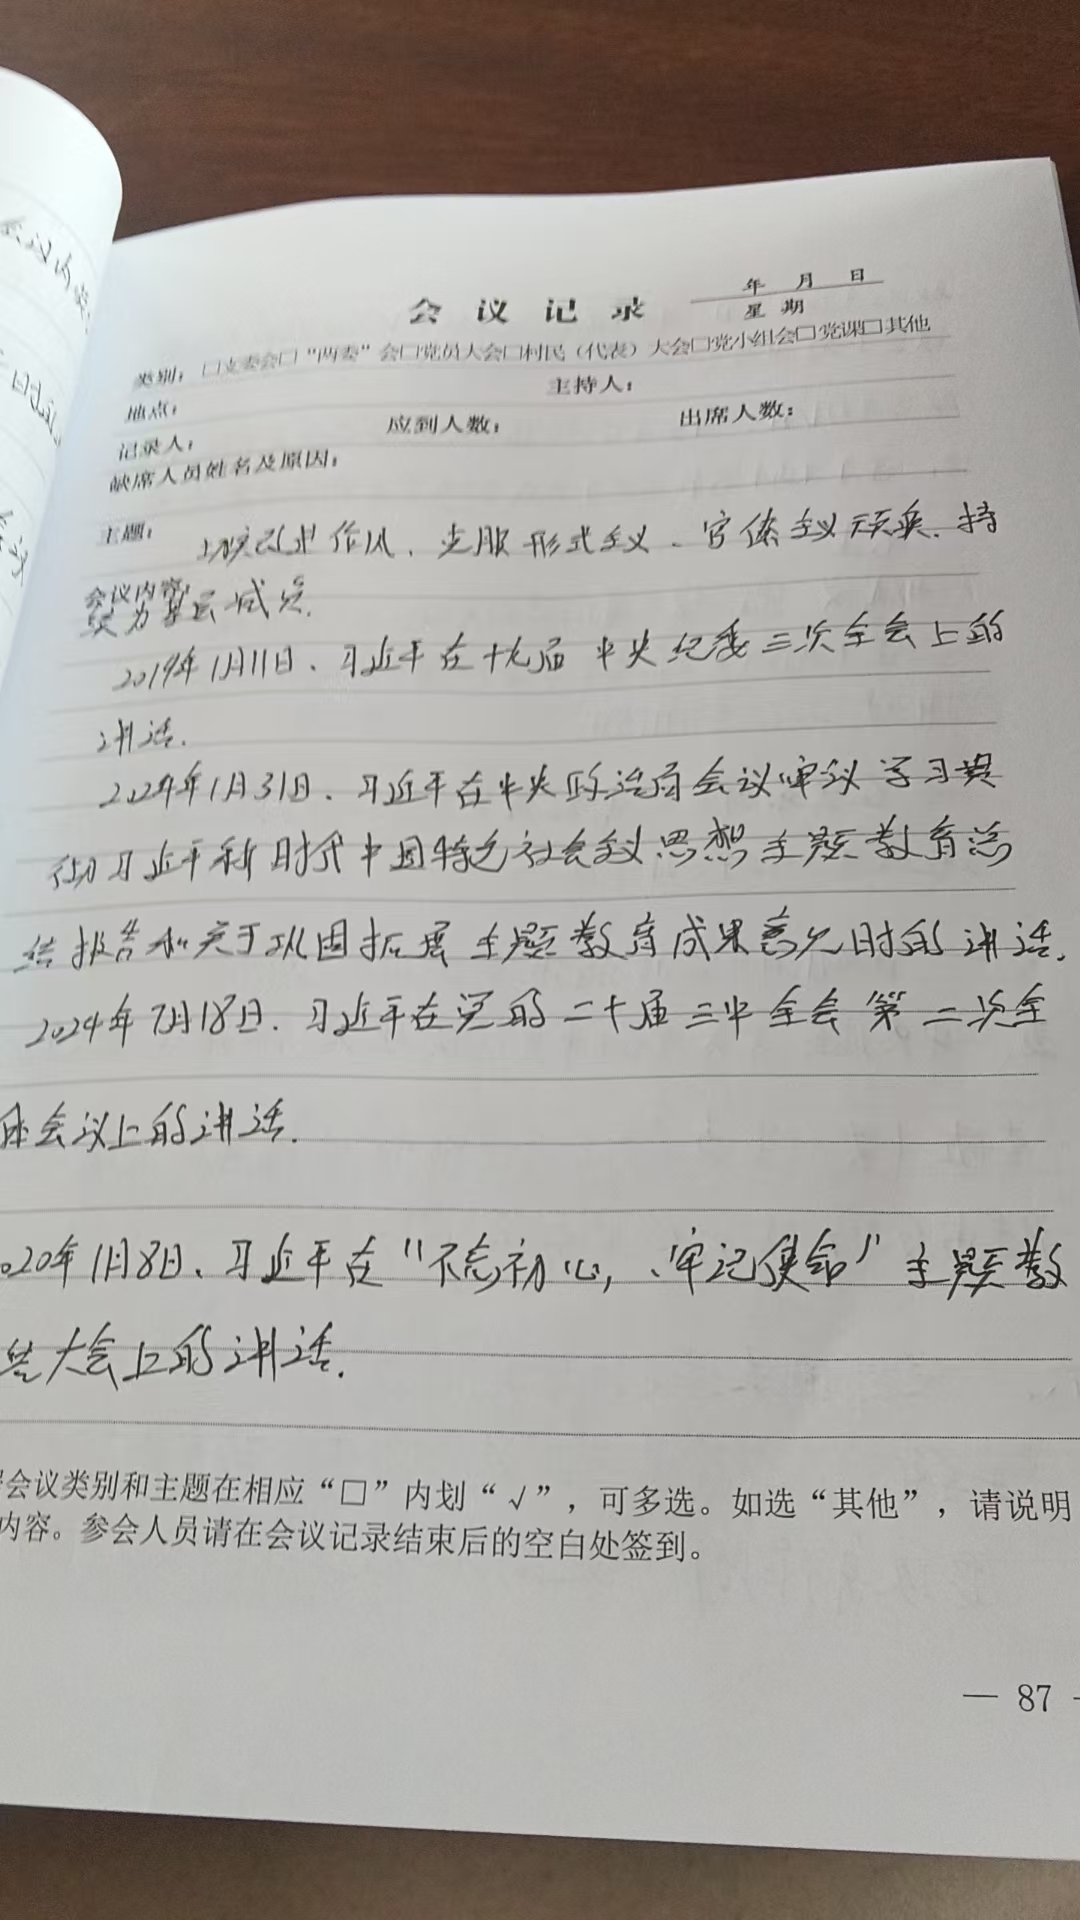 会议内容
会议记录 年 月 日
星期
类别：□支委会□“两委”会□党员大会□村民（代表）大会□党小组会□党课□其他
地点： 主持人：
记录人： 应到人数： 出席人数：
缺席人员姓名及原因：
主题：
切实改进作风、克服形式主义、官僚主义顽疾、持
会议内容：
续为基层减负.
2019年1月11日、习近平在十九届中央纪委三次全会上的
讲话.
2024年1月31日、习近平在中央政治局会议审议学习贯
彻习近平新时代中国特色社会主义思想主题教育总
结报告和关于巩固拓展主题教育成果意见时的讲话.
2024年7月18日、习近平在党的二十届三中全会第二次全
体会议上的讲话.
020年1月8日、习近平在“不忘初心，牢记使命”主题教
大会上的讲话.
会议类别和主题在相应“□”内划“√”，可多选。如选“其他”，请说明
内容。参会人员请在会议记录结束后的空白处签到。
— 87